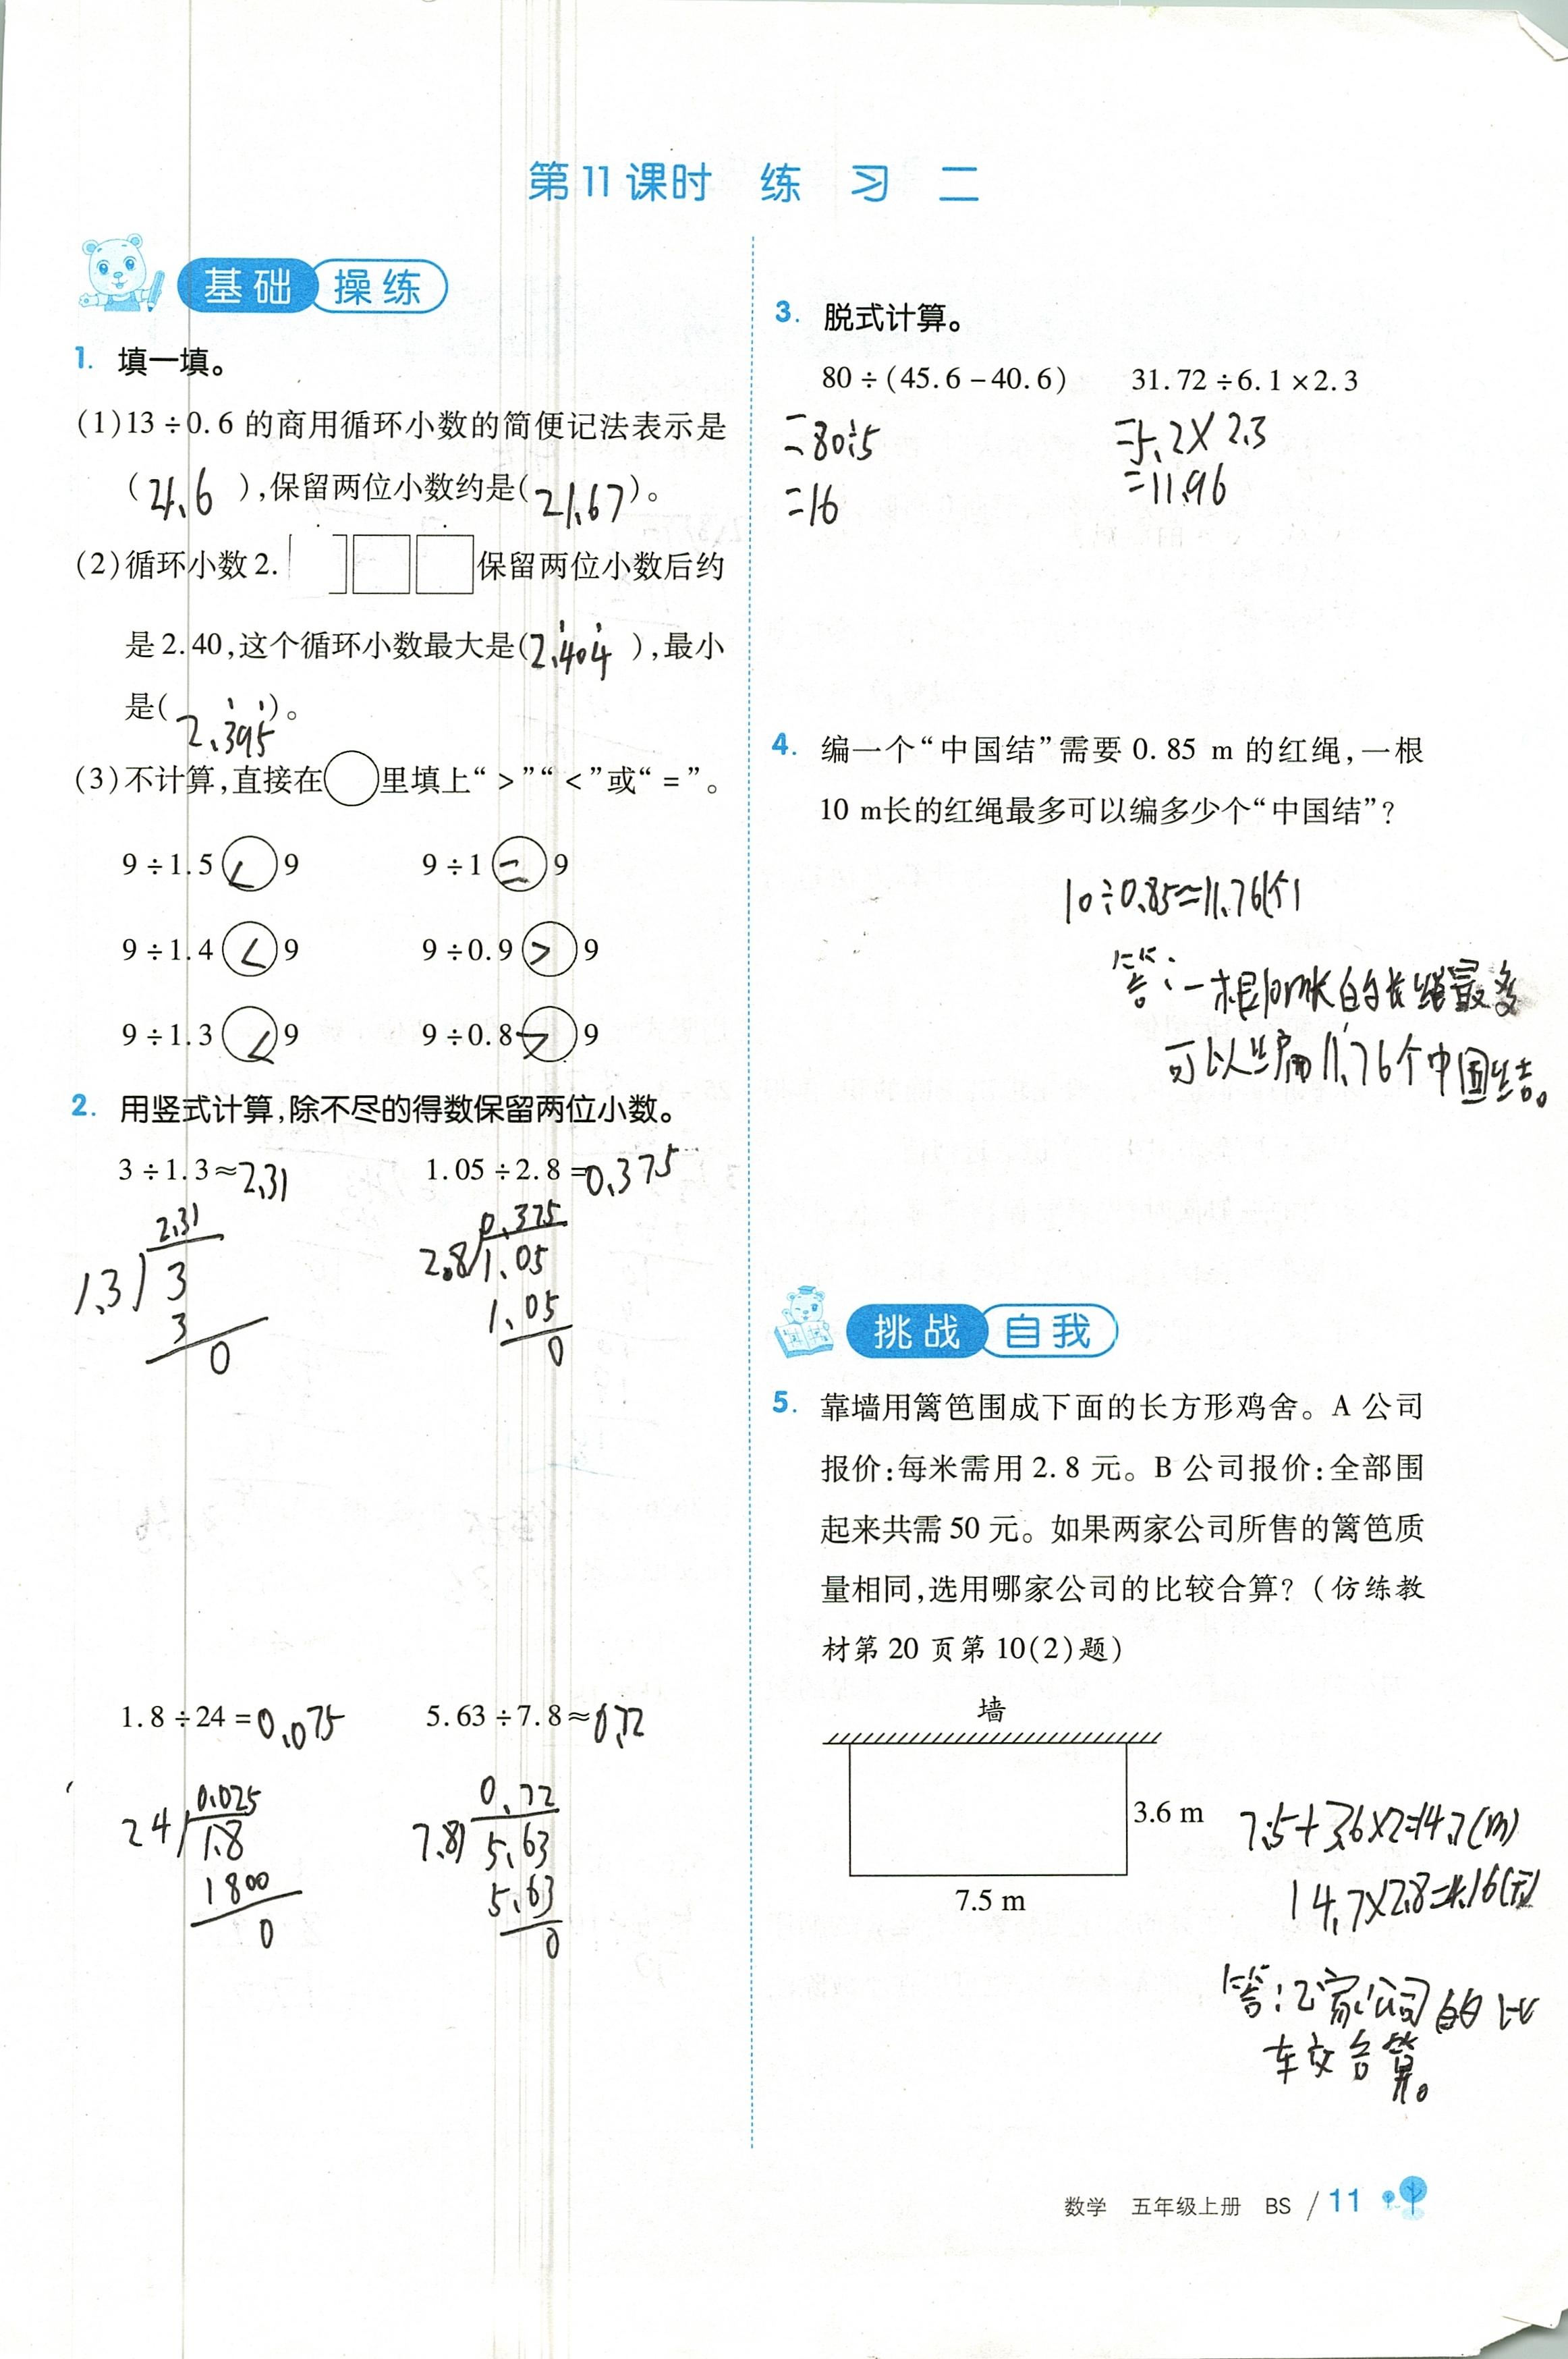 第11课时 练 习 二
基础 操练
1. 填一填。
(1)13÷0.6的商用循环小数的简便记法表示是
(21.6),保留两位小数约是(21.67)。
(2)循环小数2.□□□保留两位小数后约
是2.40,这个循环小数最大是(2.4̇04̇),最小
是(2.3̇95̇)。
(3)不计算,直接在○里填上“>”“<”或“=”。
9÷1.5<9 9÷1=9
9÷1.4<9 9÷0.9>9
9÷1.3<9 9÷0.8>9
2. 用竖式计算,除不尽的得数保留两位小数。
3÷1.3≈2.31 1.05÷2.8=0.375
2.31 0.375
1.3 3 2.8 1.05
3 1.05
0 0
1.8÷24=0.075 5.63÷7.8≈0.72
0.075 0.72
24 1.8 7.8 5.63
1800 5.63
0 0
3. 脱式计算。
80÷(45.6-40.6) 31.72÷6.1×2.3
=80÷5 =5.2×2.3
=16 =11.96
4. 编一个“中国结”需要0.85 m的红绳,一根
10 m长的红绳最多可以编多少个“中国结”?
10÷0.85≈11.76(个)
答:一根10m长的长绳最多
可以编11.76个中国结。
挑战 自我
5. 靠墙用篱笆围成下面的长方形鸡舍。A公司
报价:每米需用2.8元。B公司报价:全部围
起来共需50元。如果两家公司所售的篱笆质
量相同,选用哪家公司的比较合算?(仿练教
材第20页第10(2)题)
墙
3.6 m
7.5 m
7.5+3.6×2=14.7(m)
14.7×2.8=41.16(元)
答:乙家公司的比
较合算。
数学 五年级上册 BS / 11